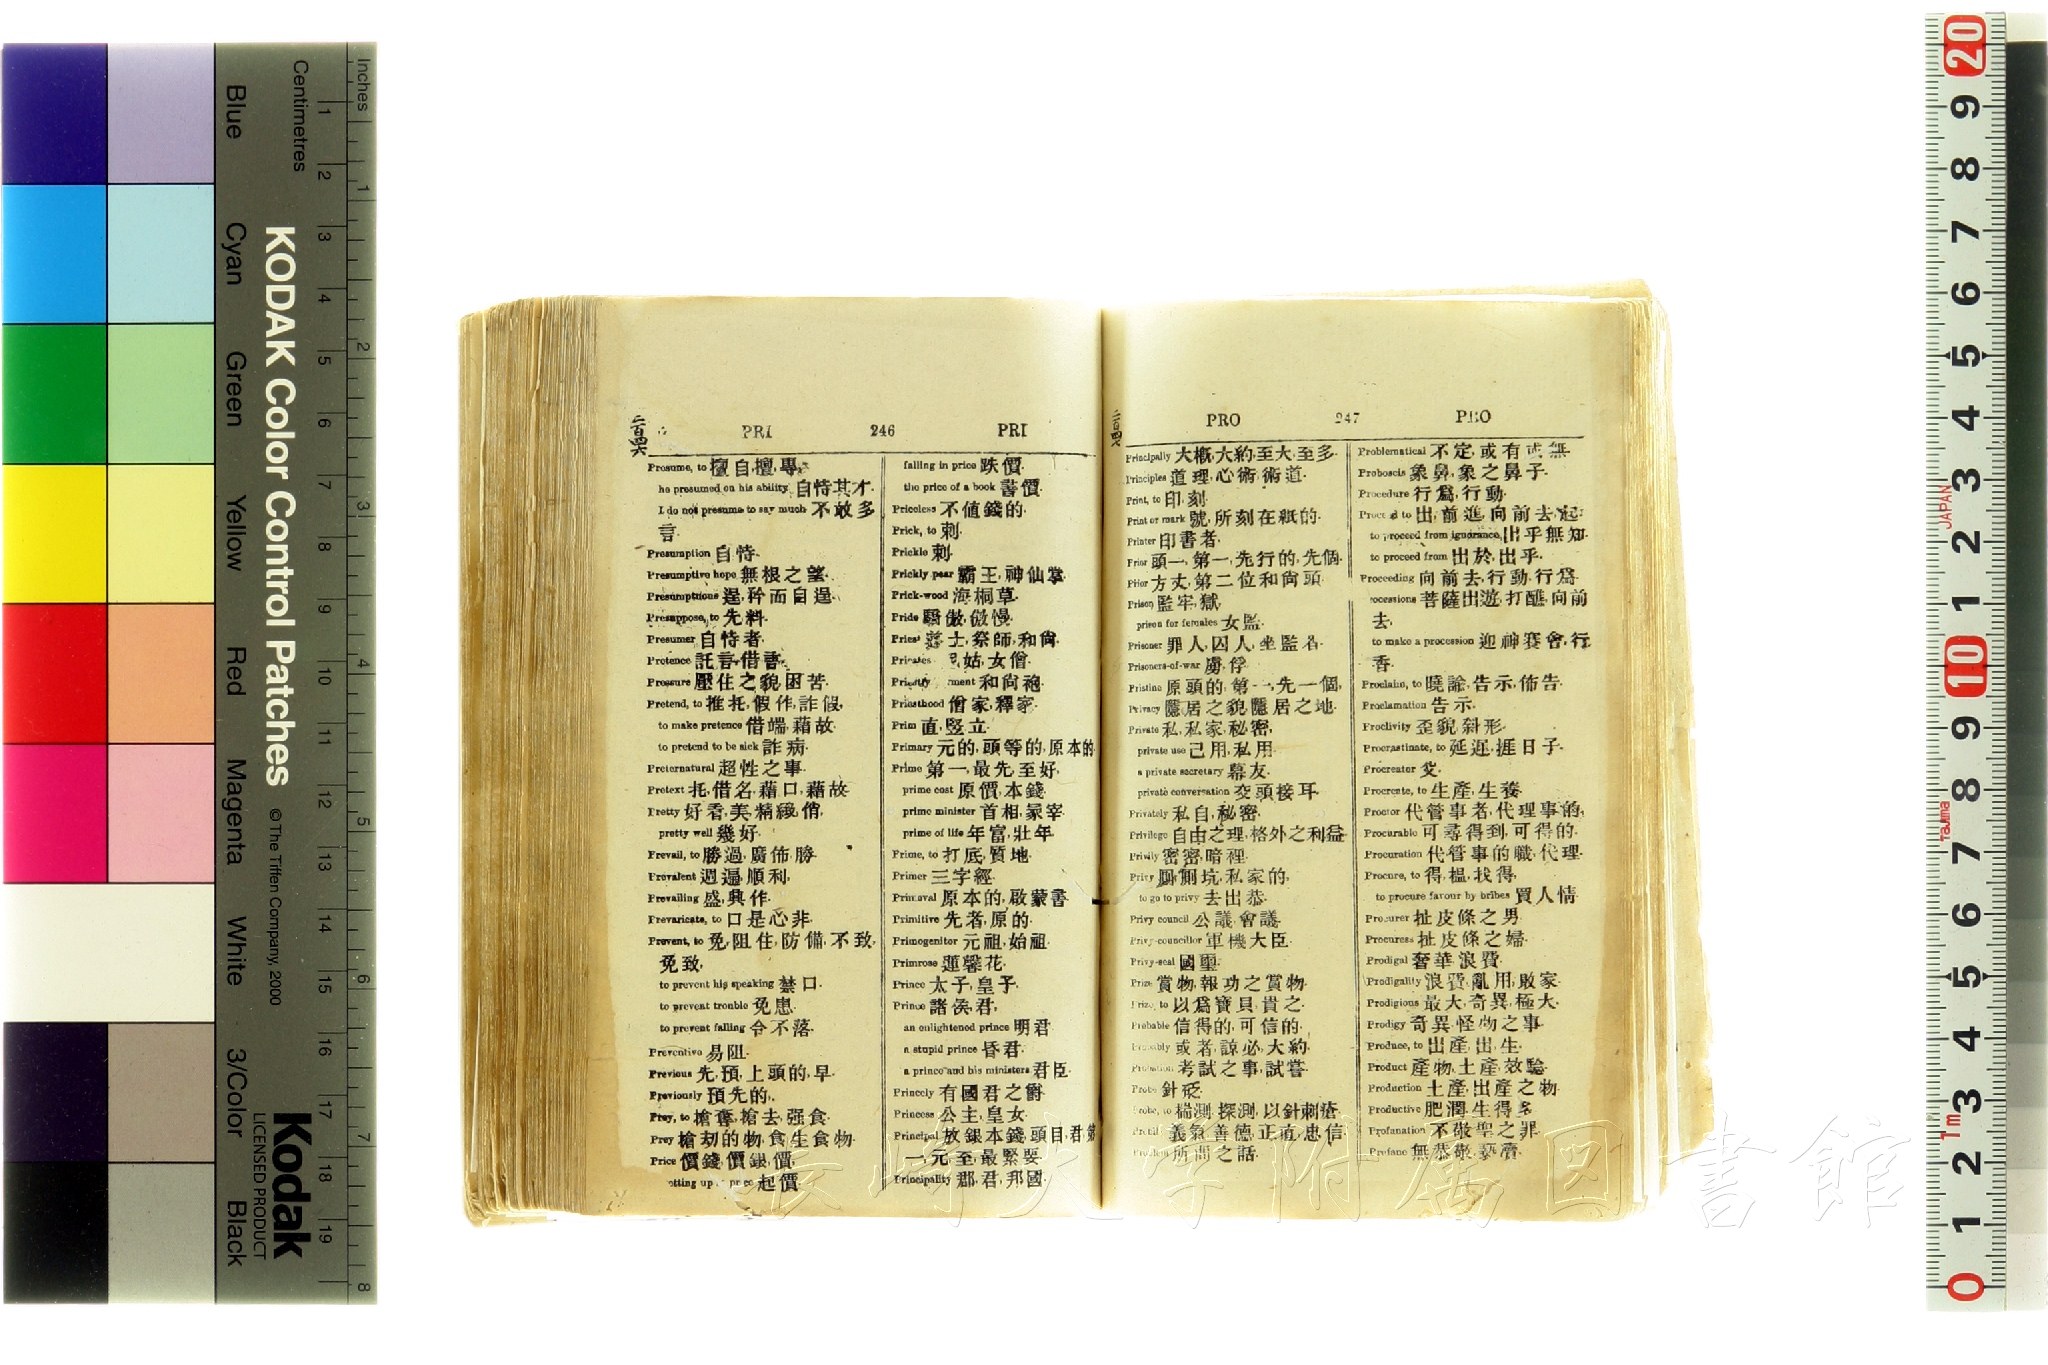 二百四六
PRI 246 PRI
Presume, to 擅自,擅,專
he presumed on his ability 自恃其才
I do not presume to say much 不敢多
言
Presumption 自恃
Presumptive hope 無根之望
Presumptuous 逞,矜而自逞
Presuppose, to 先料
Presumer 自恃者
Pretence 託言,借言
Pressure 壓住之貌,困苦
Pretend, to 推托,假作,詐假
to make pretence 借端,藉故
to pretend to be sick 詐病
Preternatural 超性之事
Pretext 托,借名,藉口,藉故
Pretty 好看,美,精緻,俏
pretty well 幾好
Prevail, to 勝過,廣佈,勝
Prevalent 週遍,順利
Prevailing 盛,興作
Prevaricate, to 口是心非
Prevent, to 免,阻住,防備,不致
免致
to prevent his speaking 禁口
to prevent trouble 免患
to prevent falling 令不落
Preventive 易阻
Previous 先,預,上頭的,早
Previously 預先的
Prey, to 搶奪,搶去,强食
Prey 搶刧的物,食生食物
Price 價錢,價銀,價
起價
falling in price 跌價
the price of a book 書價
Priceless 不值錢的
Prick, to 刺
Prickle 刺
Prickly pear 霸王,神仙掌
Prick-wood 海桐草
Pride 驕傲,傲慢
Priest 道士,祭師,和尙
姑,女僧
和尙袍
Priesthood 僧家,釋家
Prim 直,竪立
Primary 元的,頭等的,原本的
Prime 第一,最先,至好
prime cost 原價,本錢
prime minister 首相,冢宰
prime of life 年富,壯年
Prime, to 打底,質地
Primer 三字經
Primeval 原本的,啟蒙書
Primitive 先者,原的
Primogenitor 元祖,始祖
Primrose 蓮馨花
Prince 太子,皇子
Prince 諸侯,君
an enlightened prince 明君
a stupid prince 昏君
a prince and his ministers 君臣
Princely 有國君之爵
Princess 公主,皇女
Principal 放銀本錢,頭目,君第
一,元,至,最緊要
Principality 郡,君,邦國
二百四七
PRO 247 PRO
Principally 大槪,大約,至大,至多
Principles 道理,心術,術道
Print, to 印,刻
Print or mark 號,所刻在紙的
Printer 印書者
Prior 頭一,第一,先行的,先個
Prior 方丈,第二位和尙頭
Prison 監牢,獄
prison for females 女監
Prisoner 罪人,囚人,坐監者
Prisoners-of-war 虜,俘
Pristine 原頭的,第一,先一個
Privacy 隱居之貌,隱居之地
Private 私,私家,秘密
private use 己用,私用
a private secretary 幕友
private conversation 交頭接耳
Privately 私自,秘密
Privilege 自由之理,格外之利益
Privily 密密,暗裡
Privy 厠,厠坑,私家的
to go to privy 去出恭
Privy council 公議,會議
Privy-councillor 軍機大臣
Privy-seal 國璽
Prize 賞物,報功之賞物
Prize, to 以爲寶貝,貴之
Probable 信得的,可信的
Probably 或者,諒必,大約
Probation 考試之事,試嘗
Probe 針砭
Probe, to 揣測,探測,以針刺瘡
義氣,善德,正直,忠信
Problem 所問之話
Problematical 不定,或有或無
Proboscis 象鼻,象之鼻子
Procedure 行爲,行動
Proceed to 出,前進,向前去,起
to proceed from ignorance, 出乎無知
to proceed from 出於,出乎
Proceeding 向前去,行動,行爲
Processions 菩薩出遊,打醮,向前
去
to make a procession 迎神賽會,行
香
Proclaim, to 曉諭,告示,佈告
Proclamation 告示
Proclivity 歪貌,斜形
Procrastinate, to 延遲,捱日子
Procreator 父
Procreate, to 生產,生養
Proctor 代管事者,代理事的
Procurable 可尋得到,可得的
Procuration 代管事的職,代理
Procure, to 得,揾,找得
to procure favour by bribes 買人情
Procurer 扯皮條之男
Procuress 扯皮條之婦
Prodigal 奢華浪費
Prodigality 浪費,亂用,敗家
Prodigious 最大,奇異,極大
Prodigy 奇異,怪物之事
Produce, to 出產,出,生
Product 產物,土產,效驗
Production 土產,出產之物
Productive 肥潤,生得多
Profanation 不敬聖之罪
Profane 無恭敬,褻瀆
長崎大学附属図書館
Inches
Centimetres
KODAK Color Control Patches
© The Tiffen Company, 2000
Kodak
LICENSED PRODUCT
Blue Cyan Green Yellow Red Magenta White 3/Color Black
1 2 3 4 5 6 7 8 9 10 11 12 13 14 15 16 17 18 19
1 2 3 4 5 6 7 8
20 9 8 7 6 5 4 3 2 1 10 9 8 7 6 5 4 3 2 1 0
JAPAN
Tajima
1m